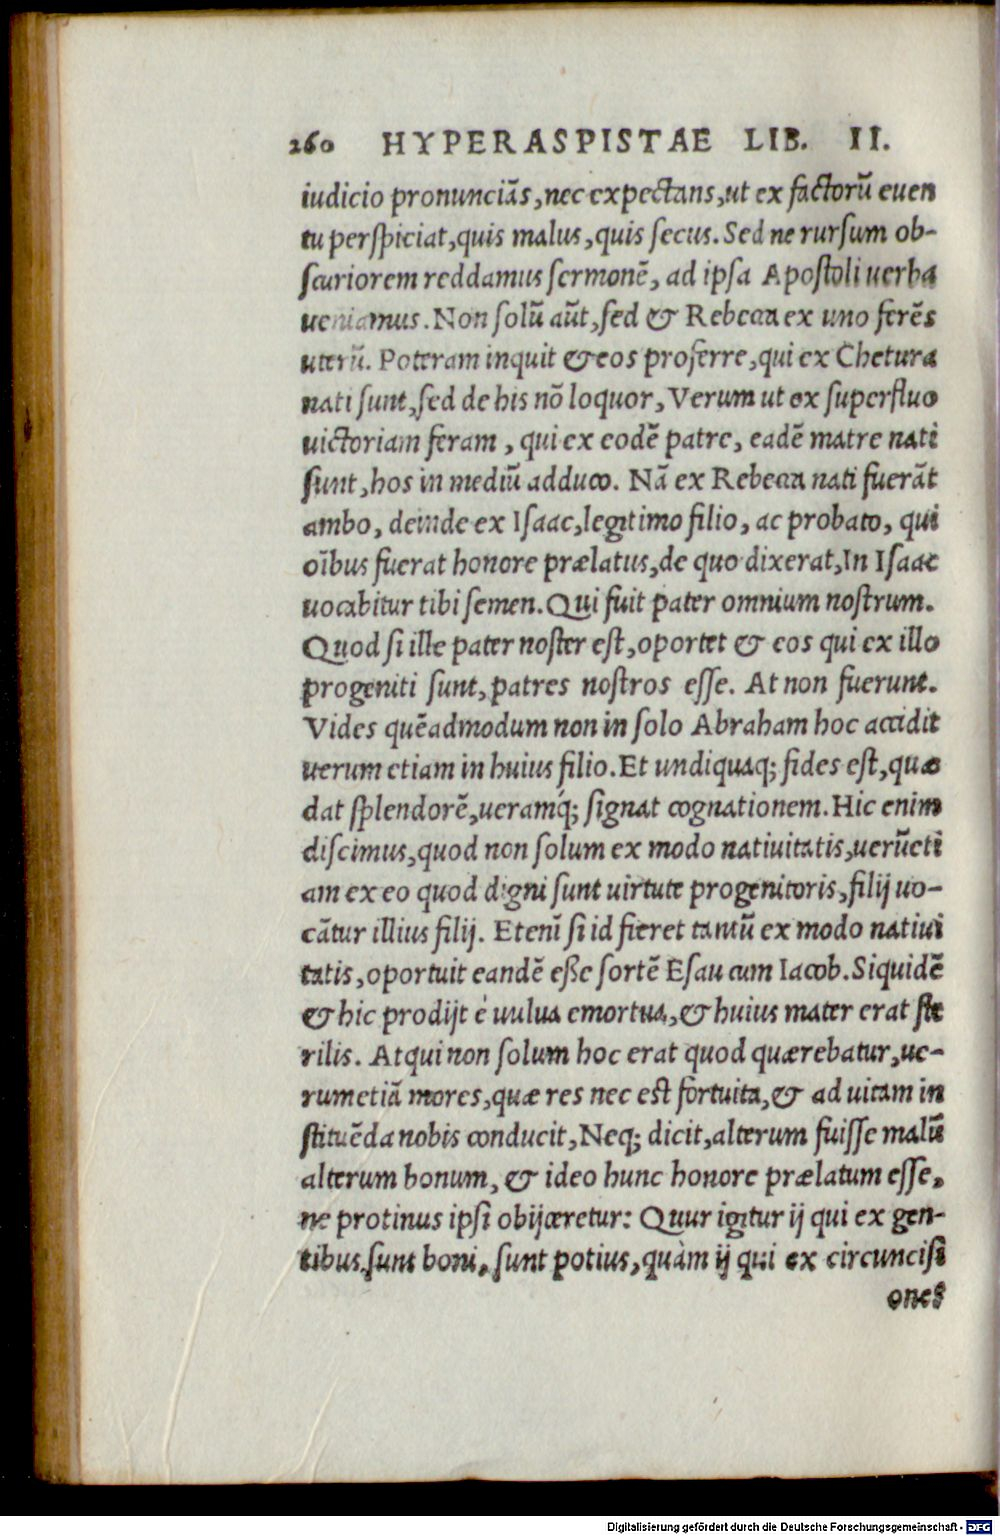 260 HYPERASPISTAE LIB. II.
iudicio pronunciãs, nec expectans, ut ex factorũ euen
tu perspiciat, quis malus, quis secus. Sed ne rursum ob-
scuriorem reddamus sermonẽ, ad ipsa Apostoli uerba
ueniamus. Non solũ aũt, sed & Rebecca ex uno ferẽs
uterũ. Poteram inquit & eos proferre, qui ex Chetura
nati sunt, sed de his nõ loquor, Verum ut ex superfluo
uictoriam feram, qui ex eodẽ patre, eadẽ matre nati
sunt, hos in mediũ adduco. Nã ex Rebecca nati fuerãt
ambo, deinde ex Isaac, legitimo filio, ac probato, qui
oĩbus fuerat honore prælatus, de quo dixerat, In Isaac
uocabitur tibi semen. Qui fuit pater omnium nostrum.
Quod si ille pater noster est, oportet & eos qui ex illo
progeniti sunt, patres nostros esse. At non fuerunt.
Vides quẽadmodum non in solo Abraham hoc accidit
uerum etiam in huius filio. Et undiquaq; fides est, quæ
dat splendorẽ, ueramq́; signat cognationem. Hic enim
discimus, quod non solum ex modo natiuitatis, uerũeti
am ex eo quod digni sunt uirtute progenitoris, filij uo-
cãtur illius filij. Etenĩ si id fieret tantũ ex modo natiui
tatis, oportuit eandẽ eße sortẽ Esau cum Iacob. Siquidẽ
& hic prodijt è uulua emortua, & huius mater erat ste
rilis. Atqui non solum hoc erat quod quærebatur, ue-
rumetiã mores, quæ res nec est fortuita, & ad uitam in
stituẽda nobis conducit, Neq; dicit, alterum fuisse malũ
alterum bonum, & ideo hunc honore prælatum esse,
ne protinus ipsi obijceretur: Quur igitur ij qui ex gen-
tibus sunt boni, sunt potius, quàm ij qui ex circuncisi
ones
Digitalisierung gefördert durch die Deutsche Forschungsgemeinschaft - DFG